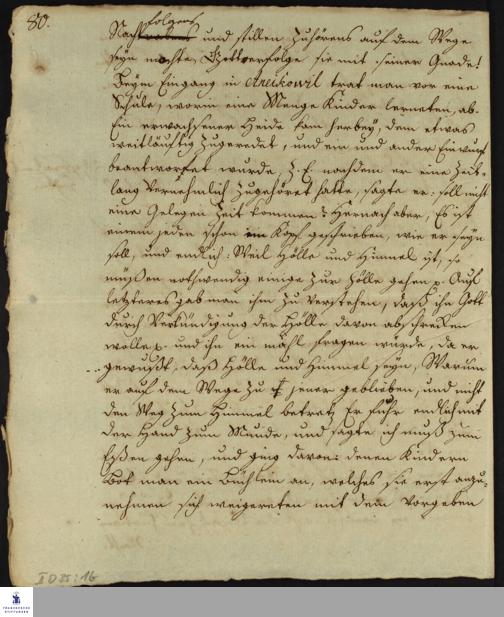 80.
folgens
Nach und stillen Zuhörens auf dem Wege
seyn mochte, Gott verfolge sie mit seiner Gnade!
Beym Eingang in Areikowil trat man vor eine
Schule, worin eine Menge Kinder lerneten, ab.
Ein erwachsener Heide kam herbey, dem etwas
weitläuftig zugeredet, und ein und ander Einwurf
beantwortet wurde, Z. E. nachdem er eine Zeit-
lang vernehmlich zugehöret hatte, sagte er: soll nicht
eine Gelegen Zeit kommen? Hernach aber, Es ist
einem jeden schon im Kopf geschrieben, wie er seyn
soll, und endlich: Weil Hölle und Himmel ist, so
müßen nothwendig einige zur Hölle gehen p. Auf
letzteres gab man ihm zu verstehen, daß ihn Gott
durch Verkündigung der Hölle davon abschrecken
wolle p. und ihn ein mahl fragen würde, da er
gewußt, daß Hölle und Himmel seyn, Warum
er auf dem Wege zu jener geblieben, und nicht
den Weg zum Himmel betrat? Er fuhr endlich mit
der Hand zum Munde, und sagte ich muß zum
Eßen gehen, und ging davon: denen Kindern
bot man ein Büchlein an, welches sie erst anzu-
nehmen sich weigerten mit dem Vorgeben
II D 35 : 16
FRANCKESCHE
STIFTUNGEN